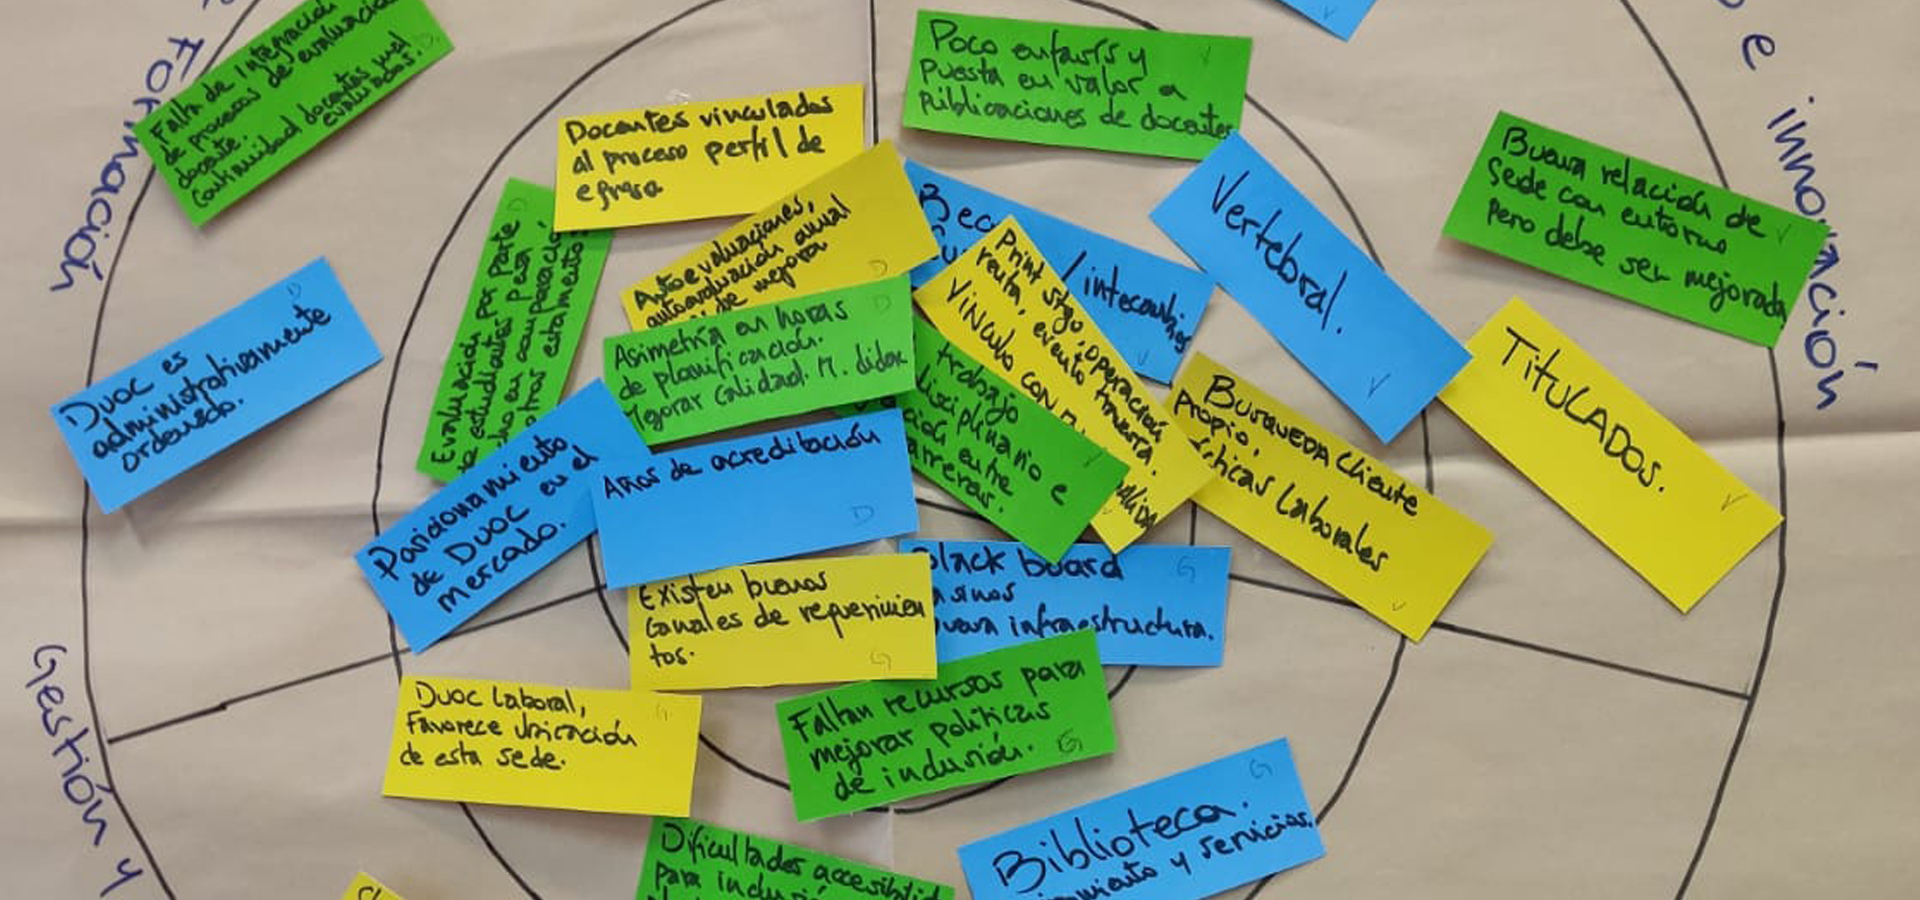 Formación
e innovación
Gestión y
Falta de integración
de procesos de evaluación
docente.
Continuidad docentes mal
evaluados.
Docentes vinculados
al proceso perfil de
egreso
Poco enfasís y
puesta en valor a
publicaciones de docentes
Buena relación de
Sede con entorno
pero debe ser mejorada
Vertebral.
TITULADOS.
/ intecambios
Autoevaluaciones,
autoevaluación anual
de mejora
Evaluación por parte
estudiantes pesa
en comparación
otros estamentos
Asimetría en horas
de planificación.
Mejorar Calidad. M. didac
Print stgo, operación
renta, evento transta.
Vínculo con
trabajo
disciplinario e
entre
carreras.
BUSQUEDA Cliente
propio,
Laborales
Duoc es
administrativamente
ordenado.
Posicionamiento
de Duoc en el
mercado.
Años de acreditación
D
Existen buenos
Canales de requerimien
tos.
G
Black board
G
infraestructura.
Duoc Laboral,
Favorece Ubicación
de esta sede.
G
Faltan recursos para
mejorar políticas
de inclusión.
G
Dificultades accesibilid
para inclusión
Biblioteca.
G
y servicios.